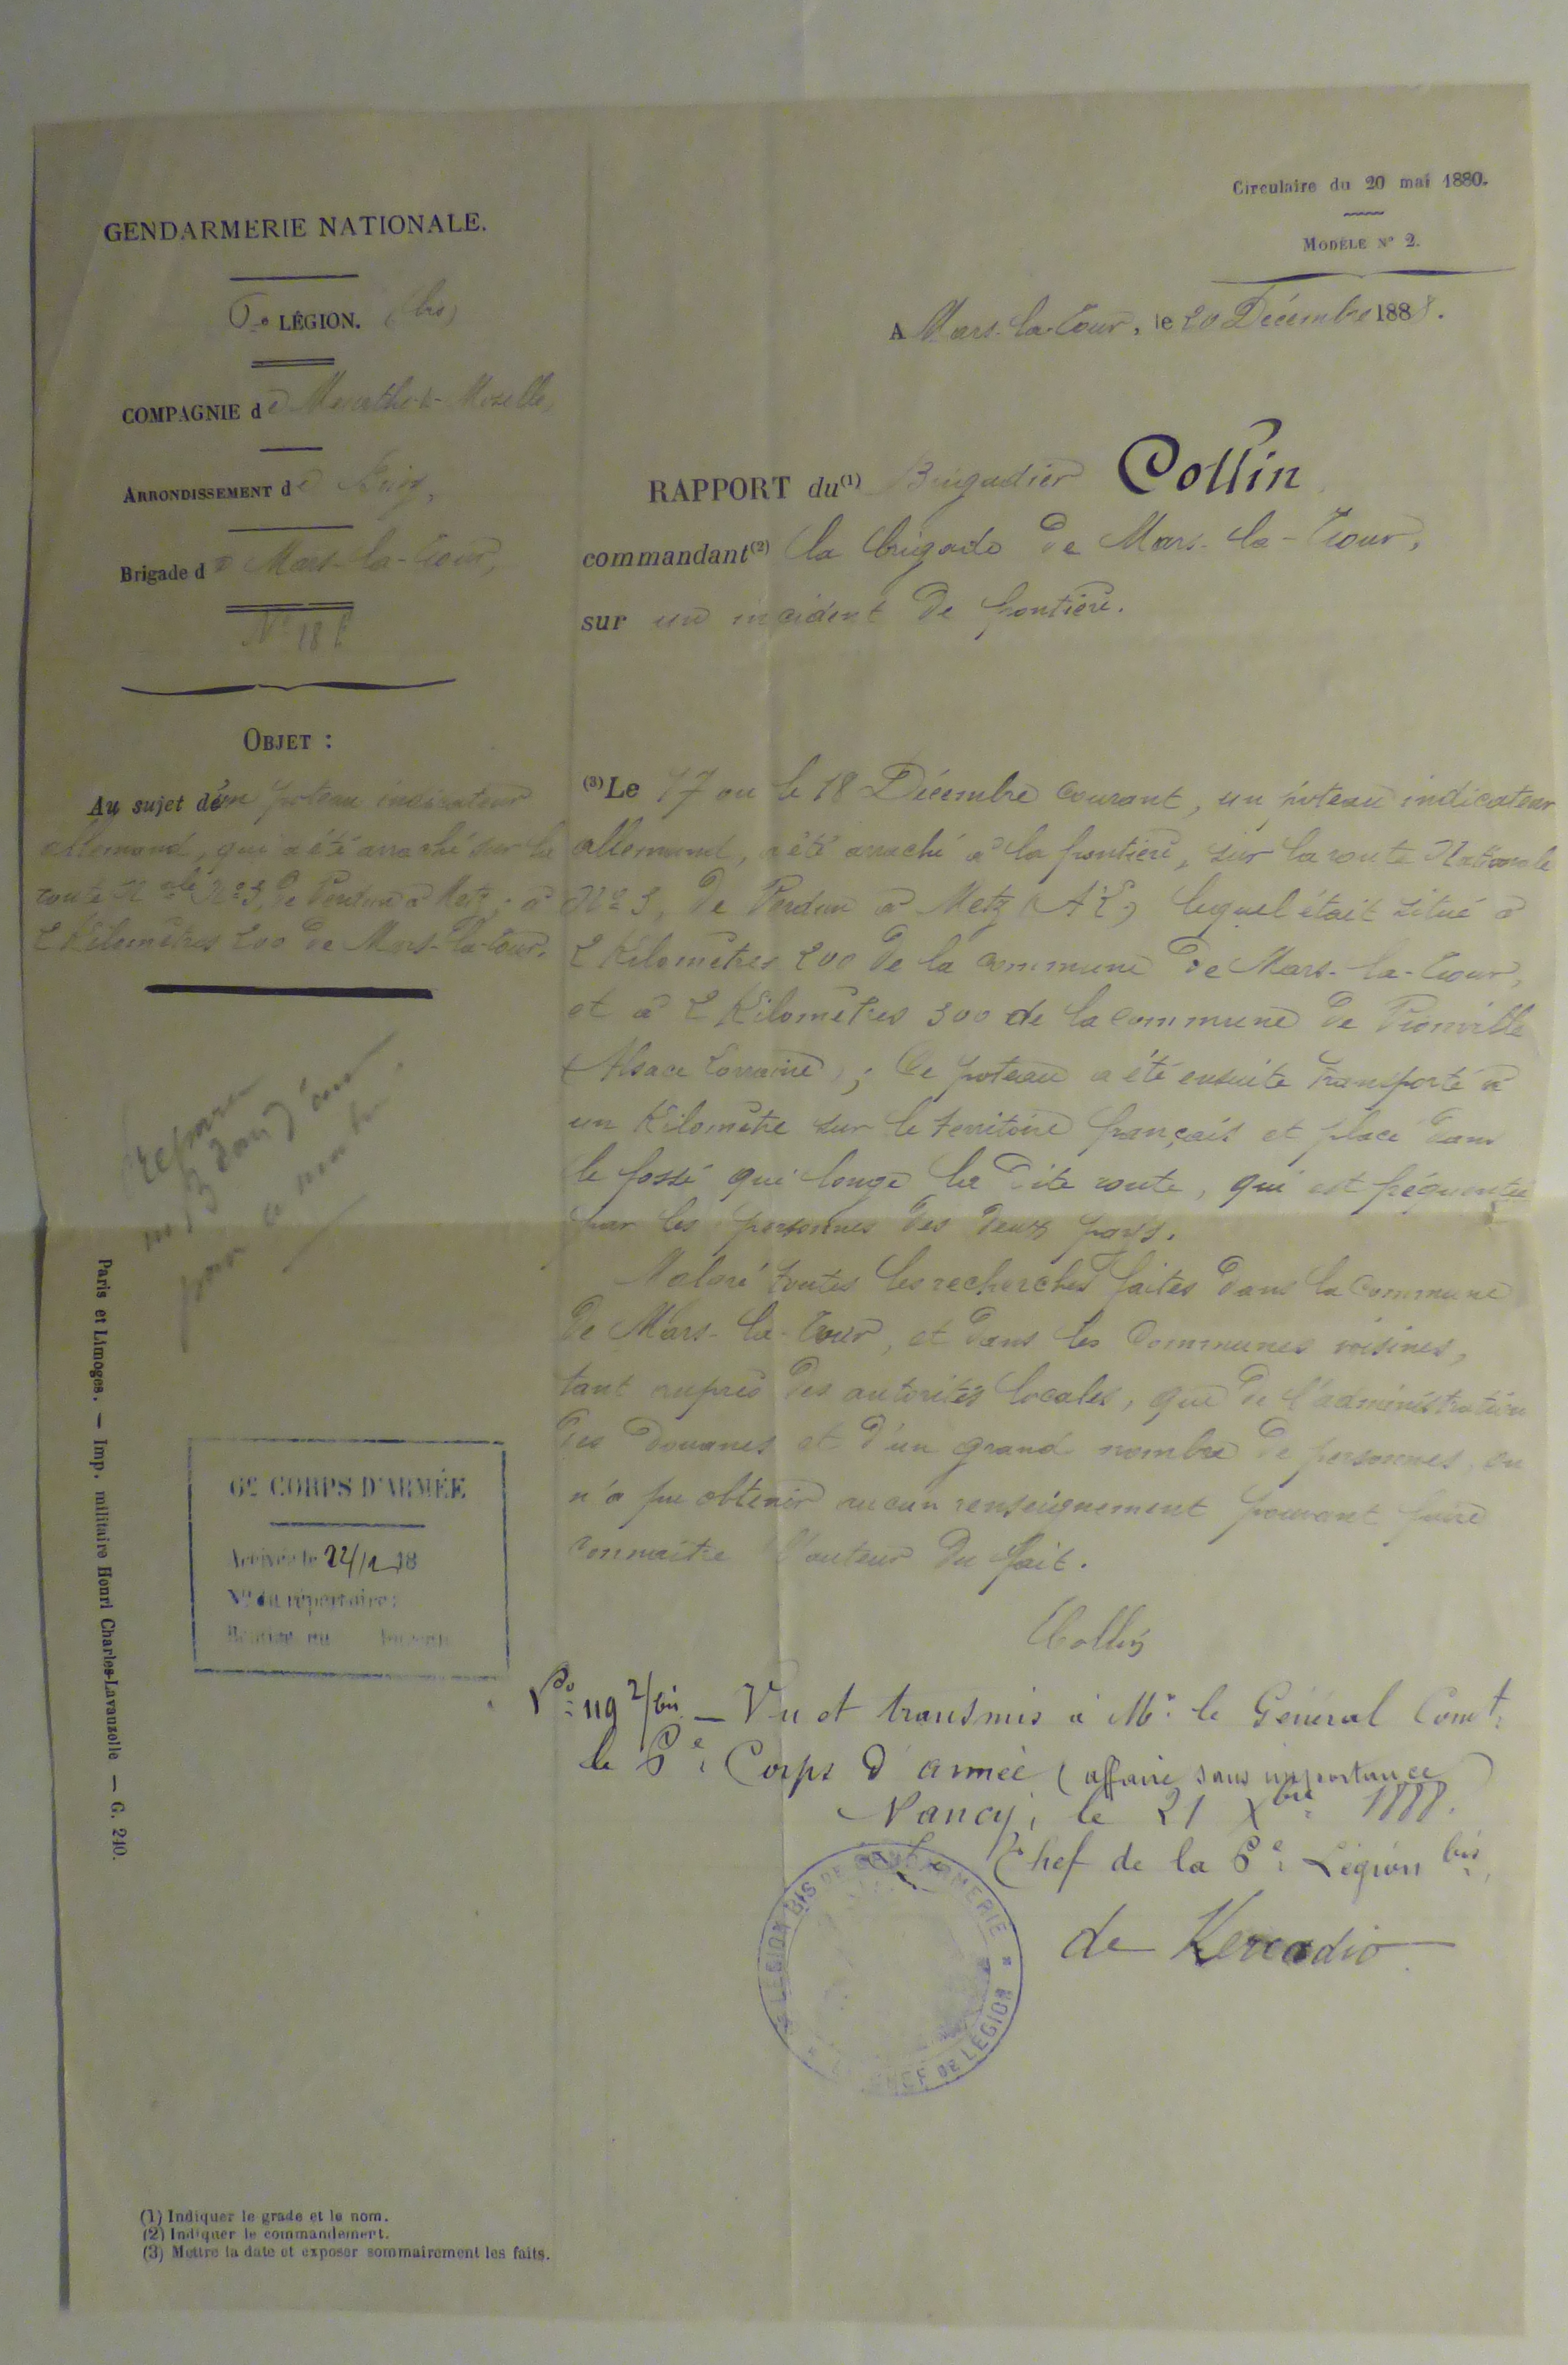 Circulaire du 20 mai 1880.
MODÈLE N° 2.
GENDARMERIE NATIONALE.
6e LÉGION. (bis)
COMPAGNIE de Meurthe-&-Moselle,
ARRONDISSEMENT de Briey,
Brigade de Mars-la-Tour,
N° 18
OBJET :
Au sujet d'un poteau indicateur
allemand, qui a été arraché sur la
route Nale N° 3, de Verdun à Metz, à
2 Kilomètres 200 de Mars-la-Tour.
A Mars-la-Tour, le 20 Décembre 1888.
RAPPORT du (1) Brigadier Collin
commandant (2) la brigade de Mars-la-Tour,
sur un incident de frontière.
(3) Le 17 ou le 18 Décembre courant, un poteau indicateur
allemand, a été arraché à la frontière, sur la route Nationale
N° 3, de Verdun à Metz (A.L.) lequel était situé à
2 Kilomètres 200 de la commune de Mars-la-Tour,
et à 2 Kilomètres 300 de la commune de Vionville
(Alsace Lorraine) ; Ce poteau a été ensuite transporté à
un Kilomètre sur le territoire français et placé dans
le fossé qui longe la dite route, qui est fréquentée
par les personnes des deux pays.
Malgré toutes les recherches faites dans la commune
de Mars-la-Tour, et dans les communes voisines,
tant auprès des autorités locales, que de l'administration
des Douanes et d'un grand nombre de personnes, on
n'a pu obtenir aucun renseignement pouvant faire
connaître l'auteur du fait.
Collin
N° 119 2/bis — Vu et transmis à Mr le Général Comt
le 6e Corps d'armée (affaire sans importance)
Nancy, le 21 Xbre 1888.
Le Chef de la 6e Légion bis,
de Kercadio
6e CORPS D'ARMÉE
Arrivée le 22/12 18
N° du répertoire :
LÉGION BIS DE GENDARMERIE
DE LÉGION
Paris et Limoges. — Imp. militaire Henri Charles-Lavauzelle — G. 240.
(1) Indiquer le grade et le nom.
(2) Indiquer le commandement.
(3) Mettre la date et exposer sommairement les faits.